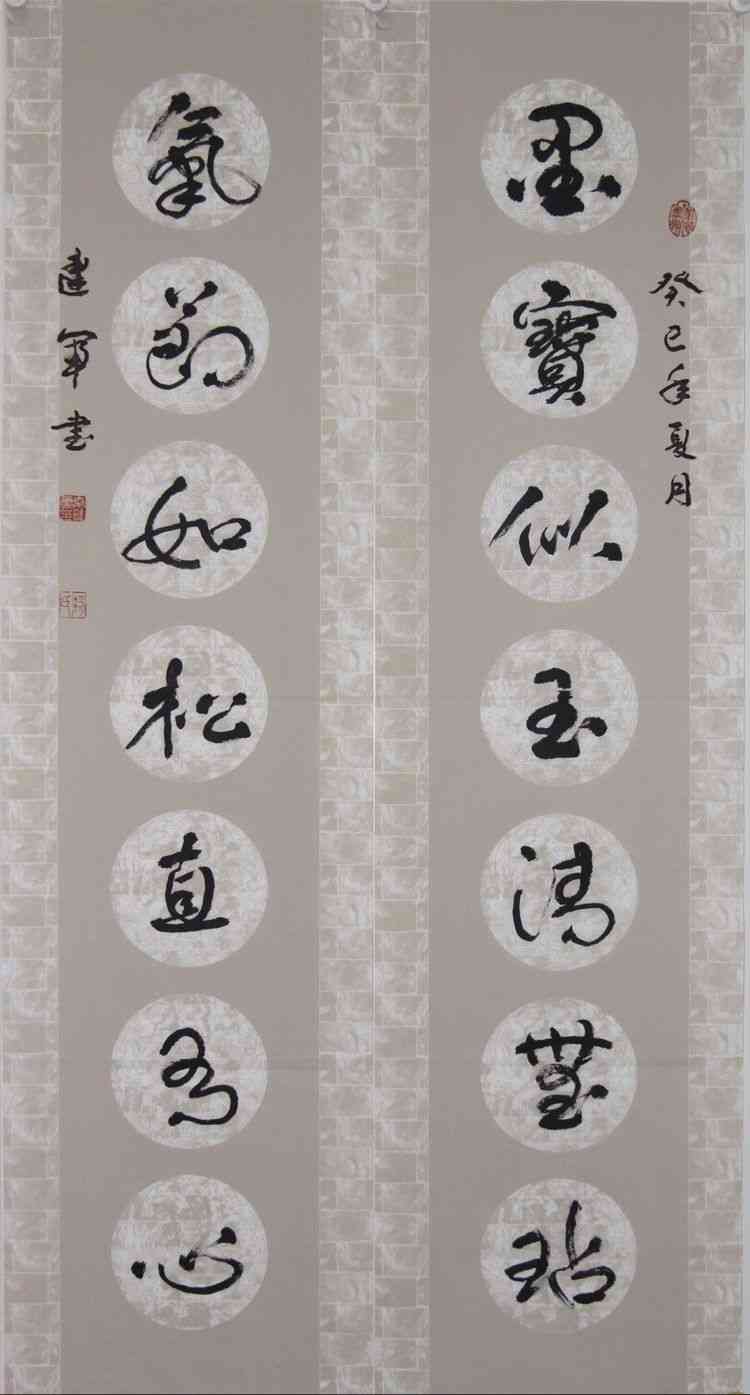 癸巳年夏月
墨寶似玉清無玷
氣節如松直有心
建軍书